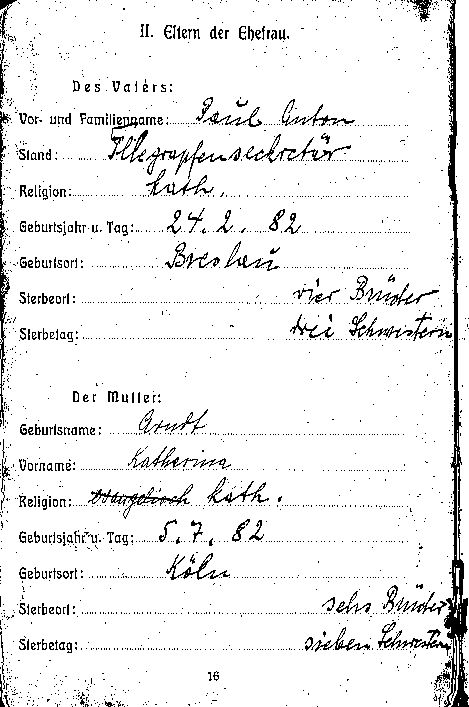 II. Eltern der Ehefrau.
Des Vaters:
Vor- und Familienname: Paul Anton
Stand: Telegrapfenseckretär
Religion: kath.
Geburtsjahr u. Tag: 24. 2. 82
Geburtsort: Breslau
Sterbeort: vier Brüder
Sterbetag: drei Schwestern
Der Mutter:
Geburtsname: Arndt
Vorname: Katherina
Religion: evangelisch kath.
Geburtsjahr u. Tag: 5. 7. 82
Geburtsort: Köln
Sterbeort: sehs Brüder
Sterbetag: sieben Schwestern
16